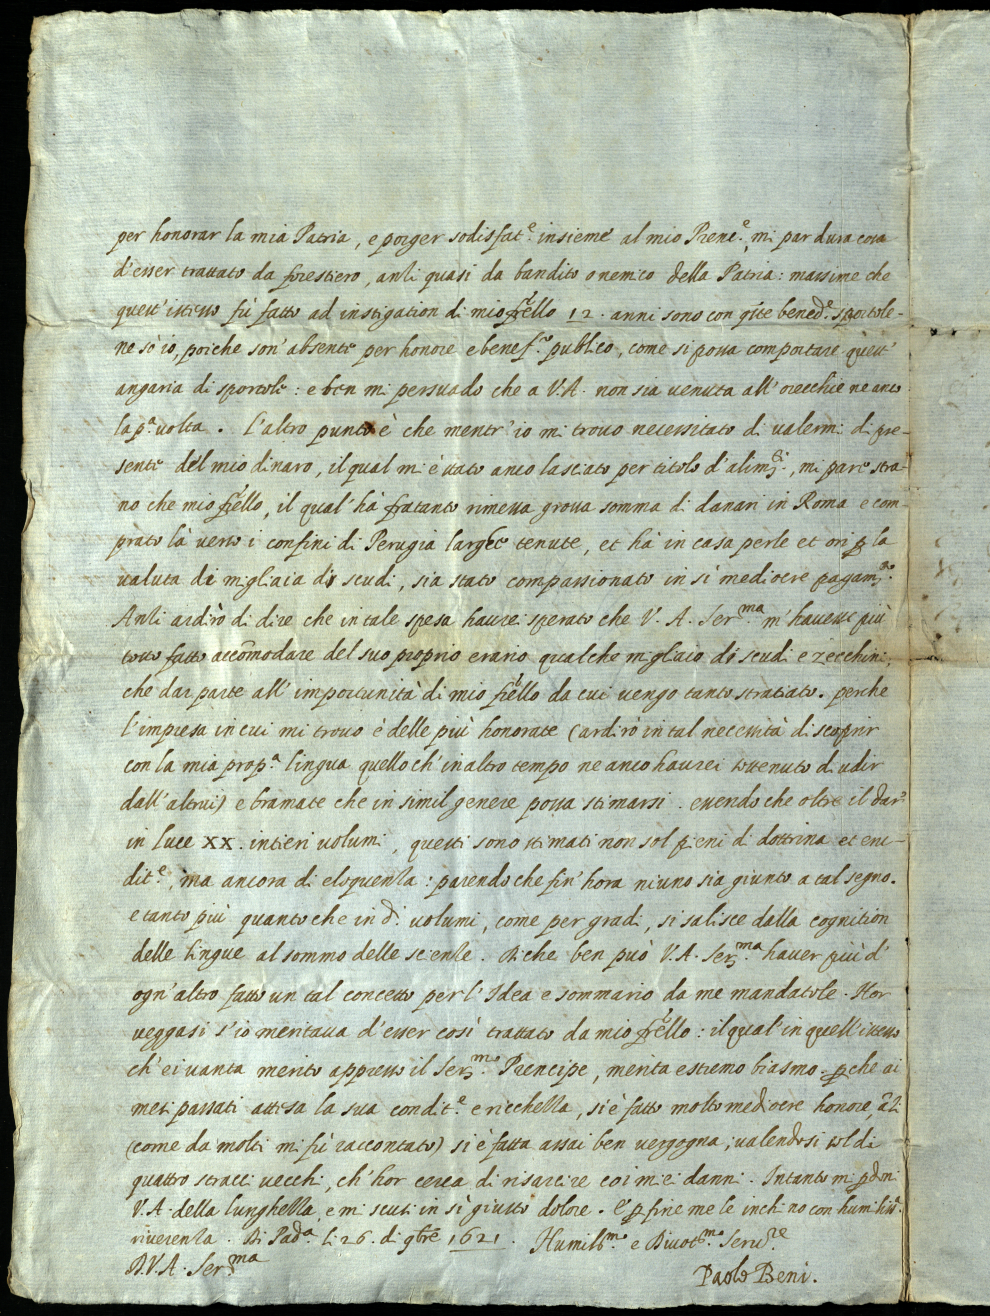 per honorar la mia Patria, e porger sodisfat.e insieme al mio Prenc.e, mi par dura cosa
d'esser trattato da forestiero, anzi quasi da bandito o nemico della Patria: massime che
quest'istesso fù fatto ad instigation di mio frello 12. anni sono con qste bened.e sportole-
ne sò io, poiche son' absente per honore e benef.o publico, come si possa comportare quest'
angaria di sportole: e ben mi persuado che a V.A. non sia venuta all' orecchie ne anco
la p.a volta. L'altro punto è che mentr' io mi trovo necessitato di valermi di pre-
sente del mio dinaro, il qual mi è stato anco lasciato per titolo d'alim.ti, mi pare stra-
no che mio frello, il qual' hà fratanto rimessa grossa somma di danari in Roma e com-
prato là verso i confini di Perugia larghe tenute, et hà in casa perle et ori p la
valuta di migliaia di scudi, sia stato compassionato in sì mediocre pagam.to
Anzi ardirò di dire che in tale spesa haurei sperato che V. A. Ser.ma m'havesse più
tosto fatto accõmodare del suo proprio erario qualche migliaio di scudi e zecchini,
che dar parte all' importunità di mio frello da cui vengo tanto stratiato. perche
l'impresa in cui mi trovo è delle più honorate (ardirò in tal necessità di scoprir
con la mia prop.a lingua quello ch'in altro tempo ne anco haurei sostenuto di udir
dall'altrui) e bramate che in simil genere possa stimarsi. essendo che oltre il dar
in luce XX. intieri volumi, questi sono stimati non sol pieni di dottrina et eru-
dit.e, ma ancora di eloquenza: parendo che fin' hora niuno sia giunto a tal segno.
e tanto più quanto che in d.i volumi, come per gradi, si salisce dalla cognition
delle lingue al sommo delle scienze. Di che ben può V.A. Ser.ma haver più d'
ogn'altro fatto un tal concetto per l'Idea e sommario da me mandatole. Hor
veggasi s'io meritava d'esser così trattato da mio frello: il qual' in quell'istesso
ch'ei vanta merito appresso il Ser.mo Prencipe, merita estremo biasmo. p che ai
mesi passati attesa la sua condit.e e ricchezza, si è fatto molto mediocre honore, ãzi
(come da molti mi fù raccontato) si è fatta assai ben vergogna; valendosi sol di
quattro stracci vecchi, ch'hor cerca di risarcire coi miei danni. Intanto mi pdoni
V.A. della lunghezza e mi scusi in sì giusto dolore. E p fine me le inchino con humiliss.
riverenza. Di Pad.a li 26. di 9bre 1621. Humiliss.mo e Divot.mo Serv.re
D.V.A. Ser.ma
Paolo Beni.